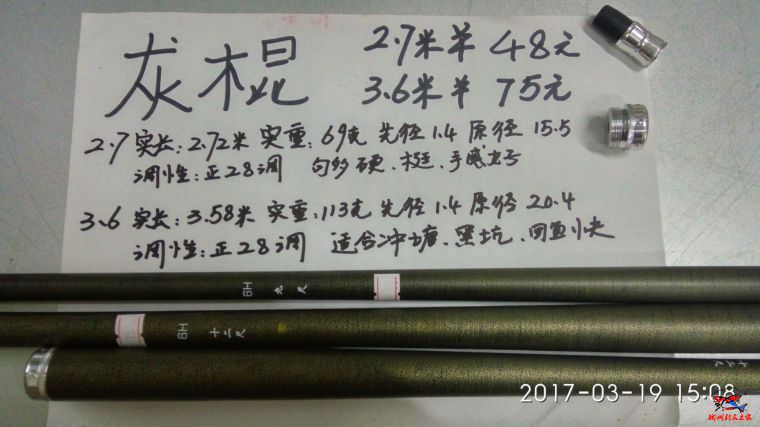 灰棍
2.7米羊 48元
3.6米羊 75元
2.7 实长:2.72米 实重:69克 先径1.4 原径 15.5
调性:正28调 够硬、挺、手感好
3.6 实长:3.58米 实重:113克 先径1.4 原径20.4
调性:正28调 适合冲塘、黑坑、回鱼小夫
6H 九尺
6H 十二尺
2017-03-19 15:08